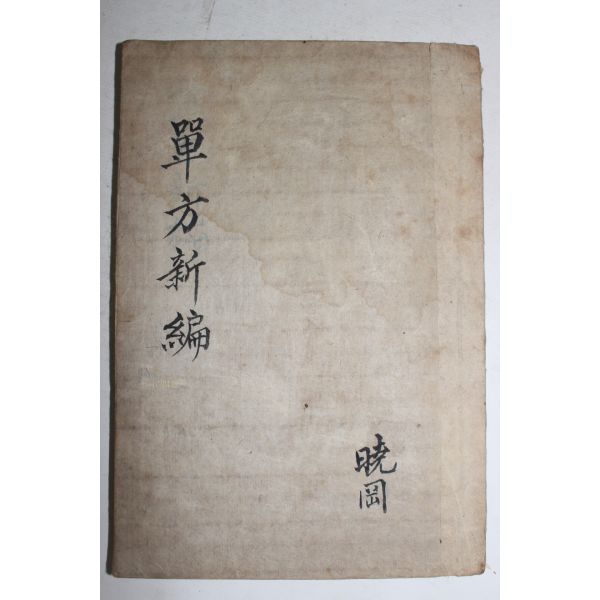 單方新編
暁岡